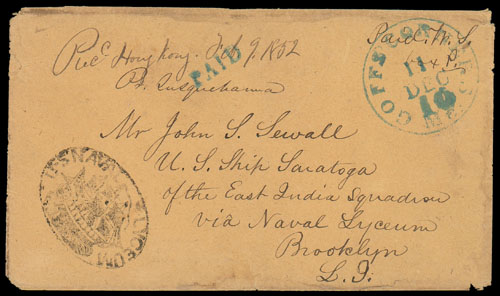 Recd Hong Kong Feb 9, 1852
Pr Susquehanna
PAID
Paid. W. S.
& P.
GOFFS CORNER ME.
11
DEC
10
Mr John S. Sewall
U. S. Ship Saratoga
of the East India Squadron
via Naval Lyceum
Brooklyn
L. I.
US NAVAL LYCEUM